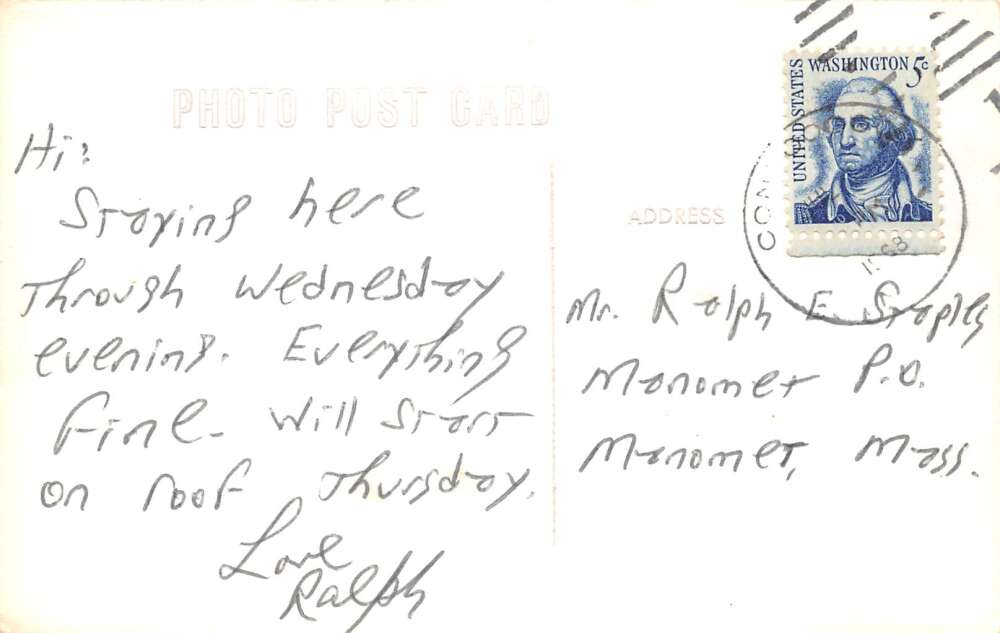 PHOTO POST CARD
UNITED STATES
WASHINGTON 5c
1968
ADDRESS
Hi:
Staying here
through Wednesday
evening. Everything
fine. Will start
on roof Thursday.
Love
Ralph
Mr. Ralph E. Staples
Manomet P.O.
Manomet, Mass.